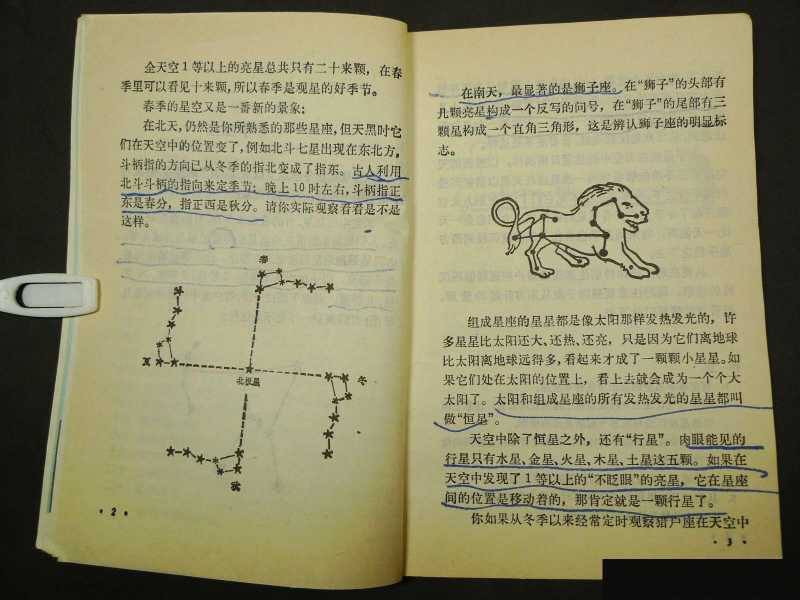 全天空1等以上的亮星总共只有二十来颗，在春
季里可以看见十来颗，所以春季是观星的好季节。
春季的星空又是一番新的景象：
在北天，仍然是你所熟悉的那些星座，但天黑时它
们在天空中的位置变了，例如北斗七星出现在东北方，
斗柄指的方向已从冬季的指北变成了指东。古人利用
北斗斗柄的指向来定季节：晚上10时左右，斗柄指正
东是春分，指正西是秋分。请你实际观察看看是不是
这样。
春
夏
北极星
冬
秋
· 2 ·
在南天，最显著的是狮子座。在“狮子”的头部有
几颗亮星构成一个反写的问号，在“狮子”的尾部有三
颗星构成一个直角三角形，这是辨认狮子座的明显标
志。
组成星座的星星都是像太阳那样发热发光的，许
多星星比太阳还大、还热、还亮，只是因为它们离地球
比太阳离地球远得多，看起来才成了一颗颗小星星。如
果它们处在太阳的位置上，看上去就会成为一个个大
太阳了。太阳和组成星座的所有发热发光的星星都叫
做“恒星”。
天空中除了恒星之外，还有“行星”。肉眼能见的
行星只有水星、金星、火星、木星、土星这五颗。如果在
天空中发现了1等以上的“不眨眼”的亮星，它在星座
间的位置是移动着的，那肯定就是一颗行星了。
你如果从冬季以来经常定时观察猎户座在天空中
· 3 ·